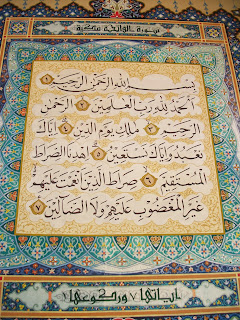 سورة الفاتحة مكية
بِسْمِ اللهِ الرَّحْمٰنِ الرَّحِيْمِ ﴿١﴾
اَلْحَمْدُ لِلّٰهِ رَبِّ الْعٰلَمِيْنَ ﴿٢﴾ الرَّحْمٰنِ
الرَّحِيْمِ ﴿٣﴾ مٰلِكِ يَوْمِ الدِّيْنِ ﴿٤﴾ اِيَّاكَ
نَعْبُدُ وَاِيَّاكَ نَسْتَعِيْنُ ﴿٥﴾ اِهْدِنَا الصِّرَاطَ
الْمُسْتَقِيْمَ ﴿٦﴾ صِرَاطَ الَّذِيْنَ اَنْعَمْتَ عَلَيْهِمْ
غَيْرِ الْمَغْضُوْبِ عَلَيْهِمْ وَلَا الضَّالِّيْنَ ﴿٧﴾
آياتها ٧ وركوعها ١